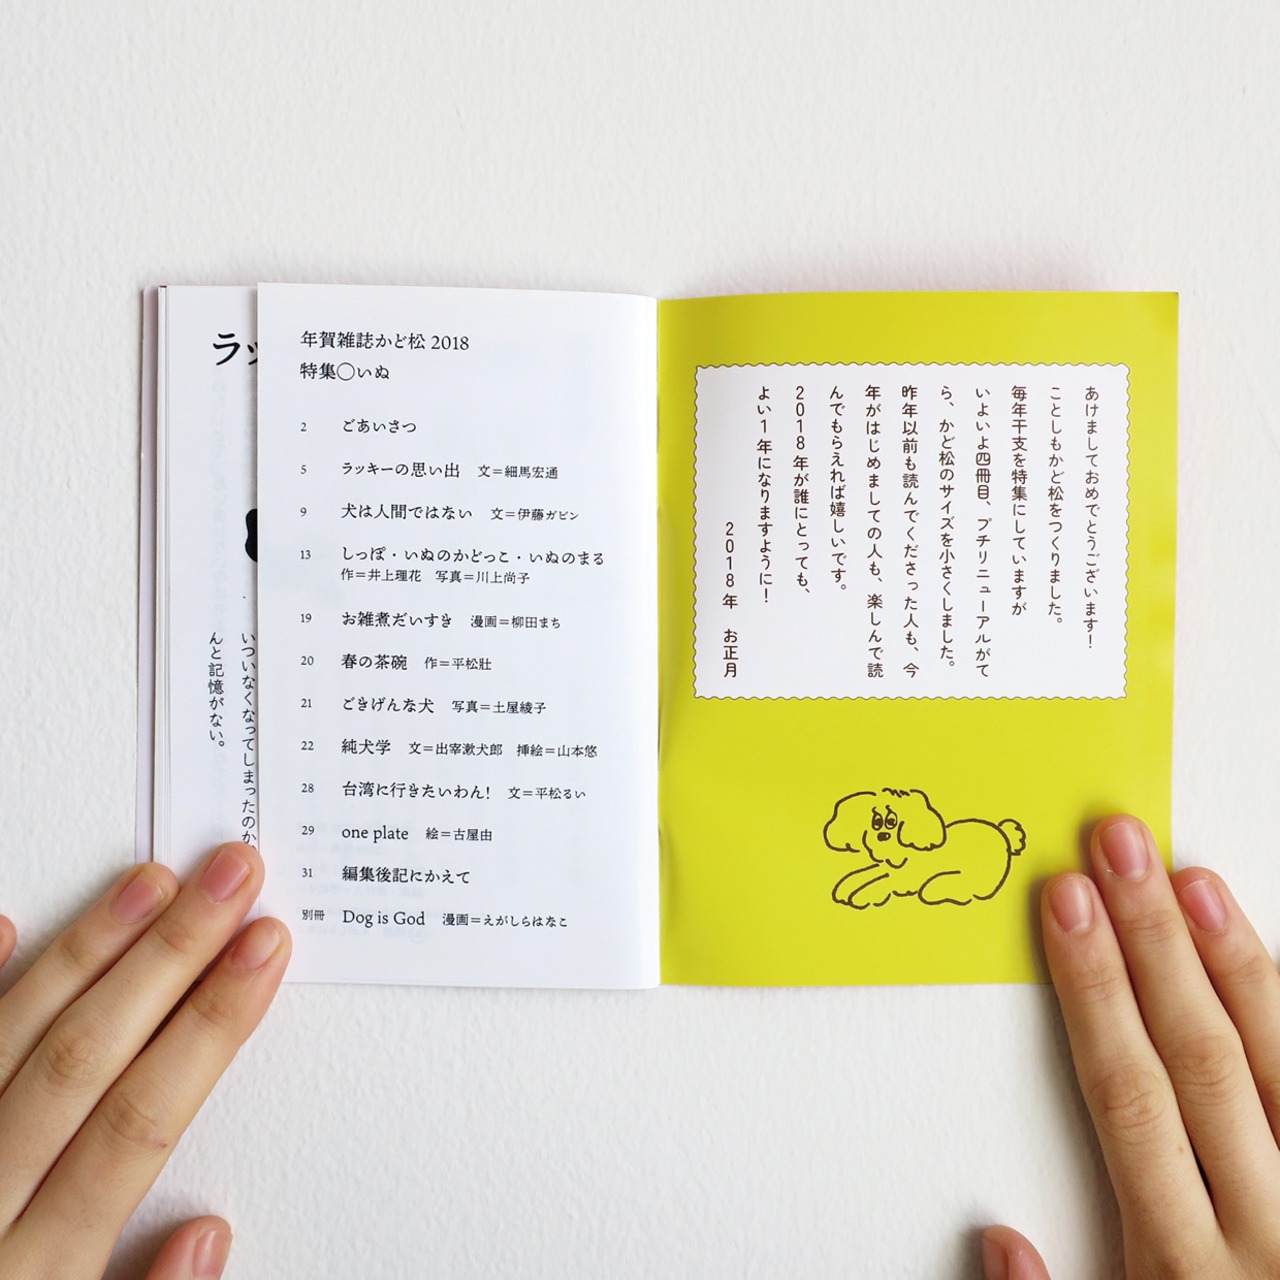 年賀雑誌かど松 2018
特集◯いぬ
2 ごあいさつ
5 ラッキーの思い出 文=細馬宏通
9 犬は人間ではない 文=伊藤ガビン
13 しっぽ・いぬのかどっこ・いぬのまる
作=井上理花 写真=川上尚子
19 お雑煮だいすき 漫画=柳田まち
20 春の茶碗 作=平松壯
21 ごきげんな犬 写真=土屋綾子
22 純犬学 文=出宰漱犬郎 挿絵=山本悠
28 台湾に行きたいわん! 文=平松るい
29 one plate 絵=古屋由
31 編集後記にかえて
別冊 Dog is God 漫画=えがしらはなこ
あけましておめでとうございます!
ことしもかど松をつくりました。
毎年干支を特集にしていますが
いよいよ四冊目、プチリニューアルがて
ら、かど松のサイズを小さくしました。
昨年以前も読んでくださった人も、今
年がはじめましての人も、楽しんで読
んでもらえれば嬉しいです。
2018年が誰にとっても、
よい1年になりますように!
2018年 お正月
ラッ
いついなくなってしまったのか
んと記憶がない。